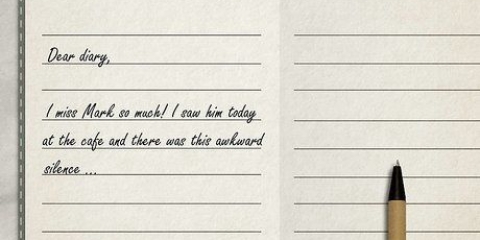 Dear diary,
I miss Mark so much! I saw him today
at the cafe and there was this awkward
silence ...